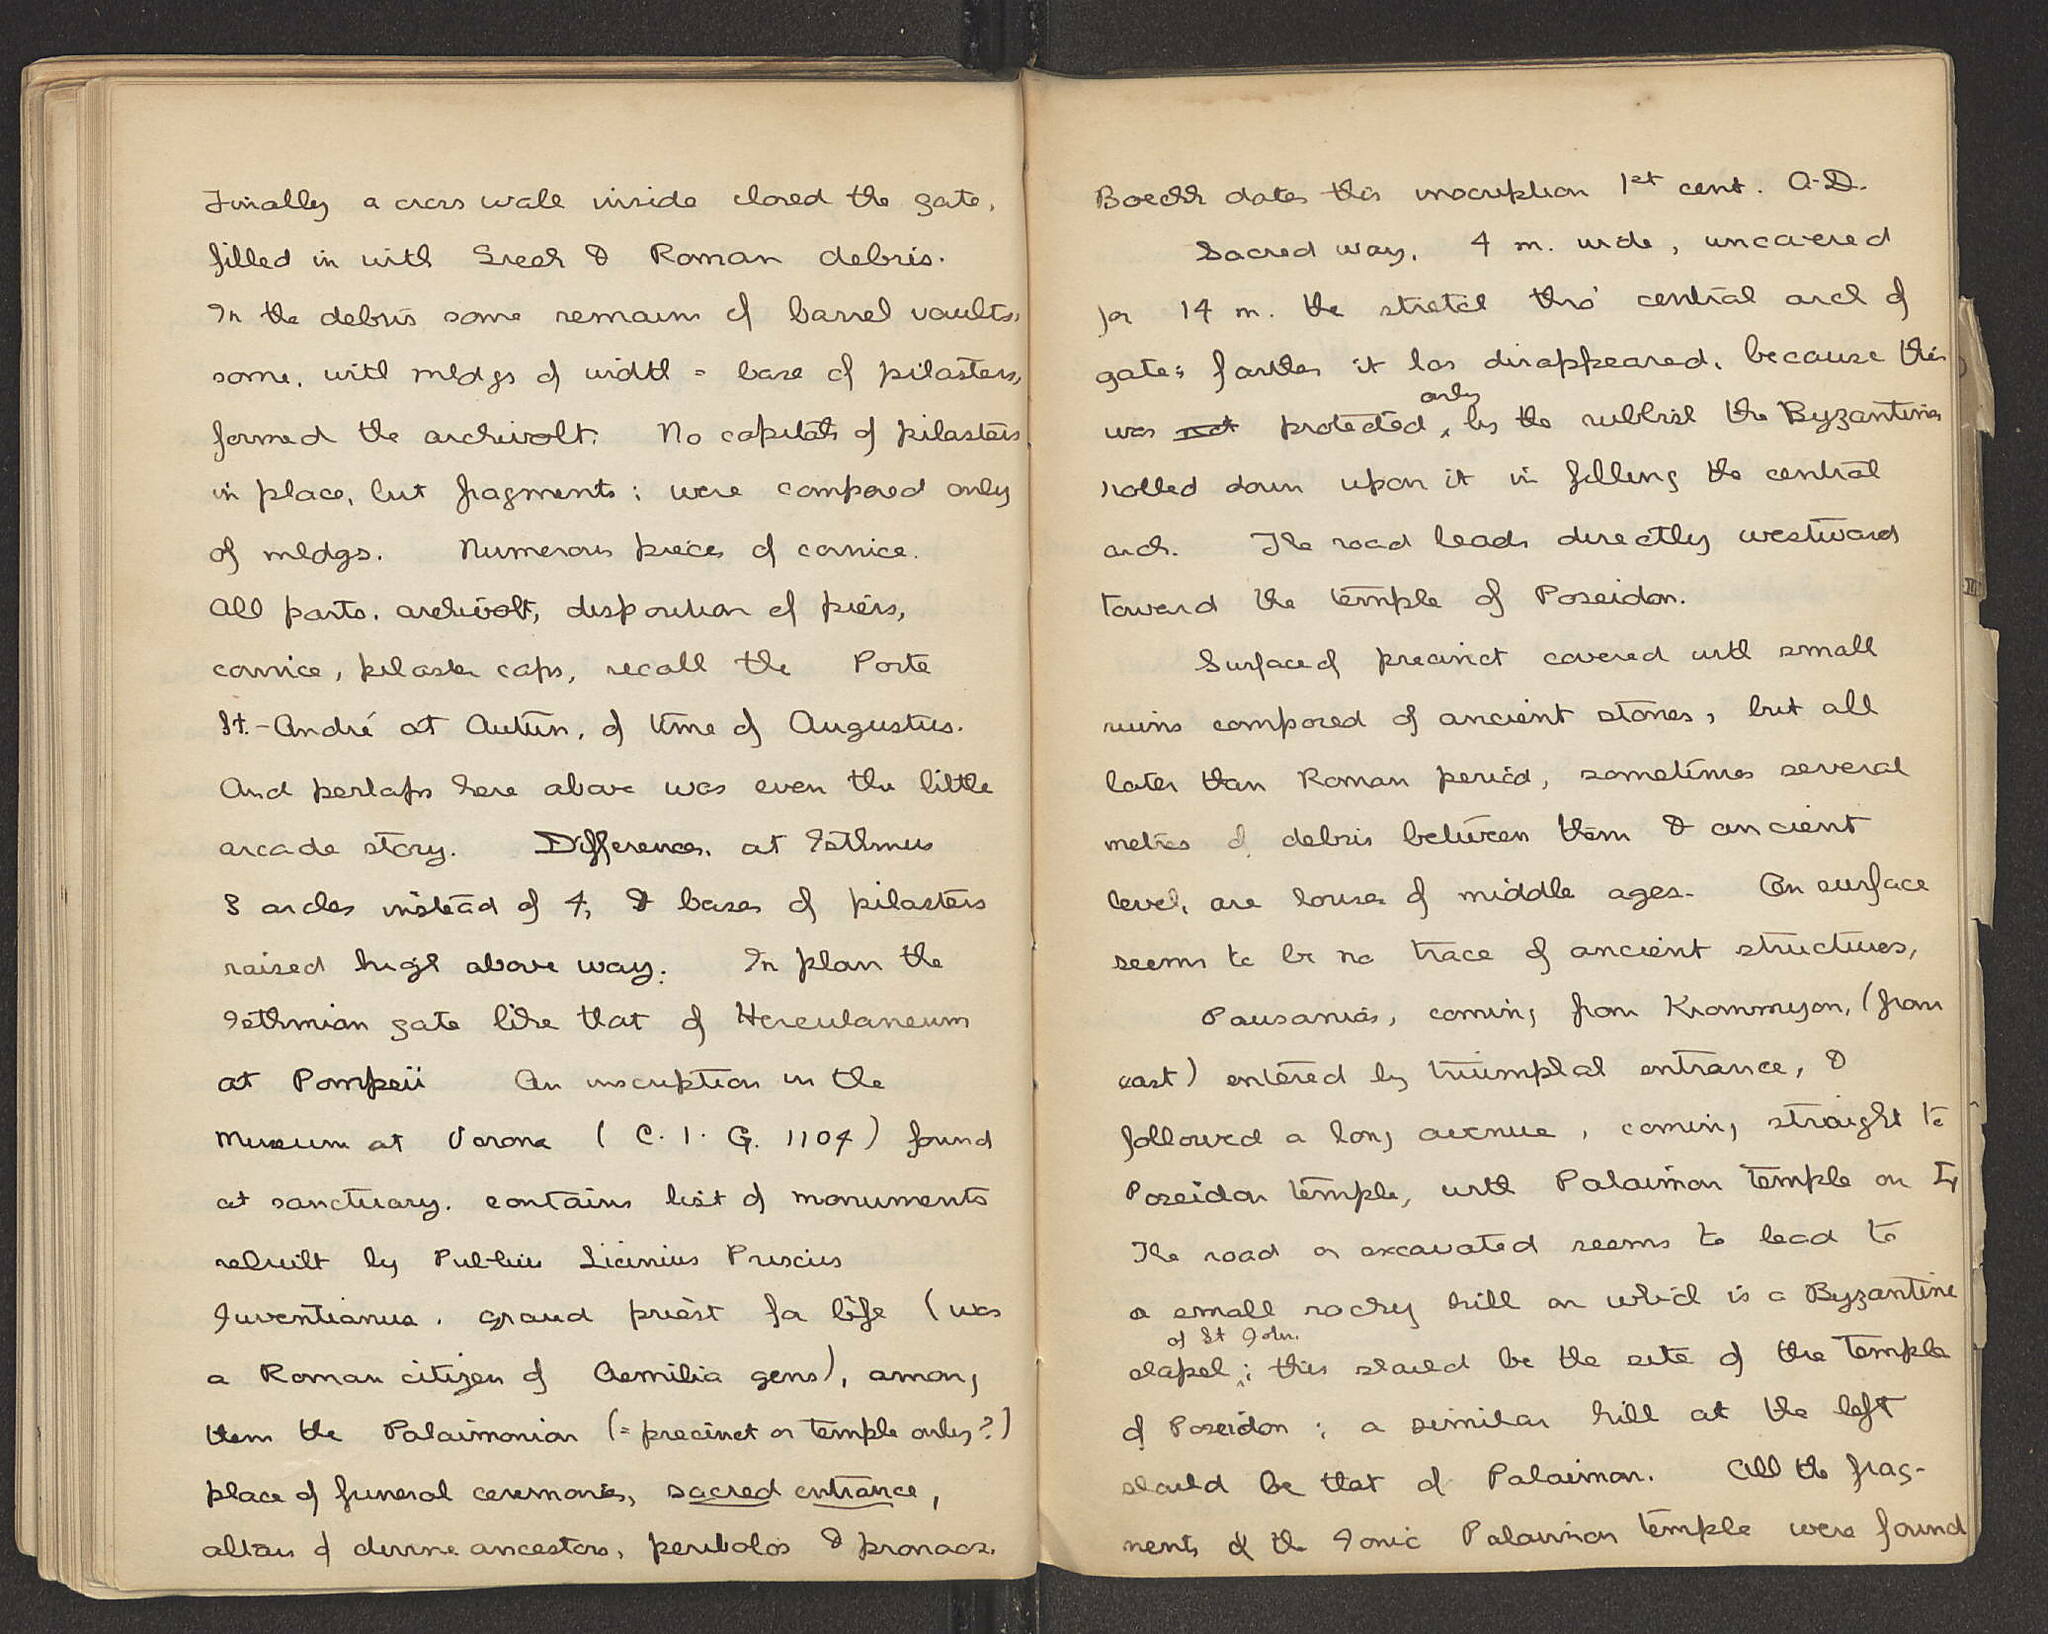 Finally a cross wall inside closed the gate,
filled in with Greek & Roman debris.
In the debris some remains of barrel vaults,
some, with mldgs of width = base of pilasters,
formed the archivolt. No capitals of pilasters
in place, but fragments; were composed only
of mldgs. Numerous pieces of cornice.
All parts, archivolt, disposition of piers,
cornice, pilaster caps, recall the Porte
St.-André at Autun, of time of Augustus.
And perhaps here above was even the little
arcade story. Difference, at Isthmus
3 arches instead of 4, & bases of pilasters
raised high above way. In plan the
Isthmian gate like that of Herculaneum
at Pompeii An inscription in the
Museum at Verona (C.I.G. 1104) found
at sanctuary, contains list of monuments
rebuilt by Publius Licinius Priscus
Iuventianus, grand priest for life (was
a Roman citizen of Aemilia gens), among
them the Palaimonion (= precinct or temple only?)
place of funeral ceremonies, sacred entrance,
altars of divine ancestors, peribolos & pronaos.
Boeckh dates this inscription 1st cent. A.D.
Sacred way, 4 m. wide, uncovered
for 14 m. the stretch thro' central arch of
gate; farther it has disappeared, because this
only
was not protected by the rubbish the Byzantines
rolled down upon it in filling the central
arch. The road leads directly westward
toward the temple of Poseidon.
Surface of precinct covered with small
ruins composed of ancient stones, but all
later than Roman period, sometimes several
metres of debris between them & ancient
level, are houses of middle ages. On surface
seems to be no trace of ancient structures,
Pausanias, coming from Krommyon, (from
east) entered by triumphal entrance, &
followed a long avenue, coming straight to
Poseidon temple, with Palaimon temple on
The road as excavated seems to lead to
a small rocky hill on which is a Byzantine
of St John
chapel; this should be the site of the temple
of Poseidon; a similar hill at the left
should be that of Palaimon. All the frag-
ments of the Ionic Palaimon temple were found